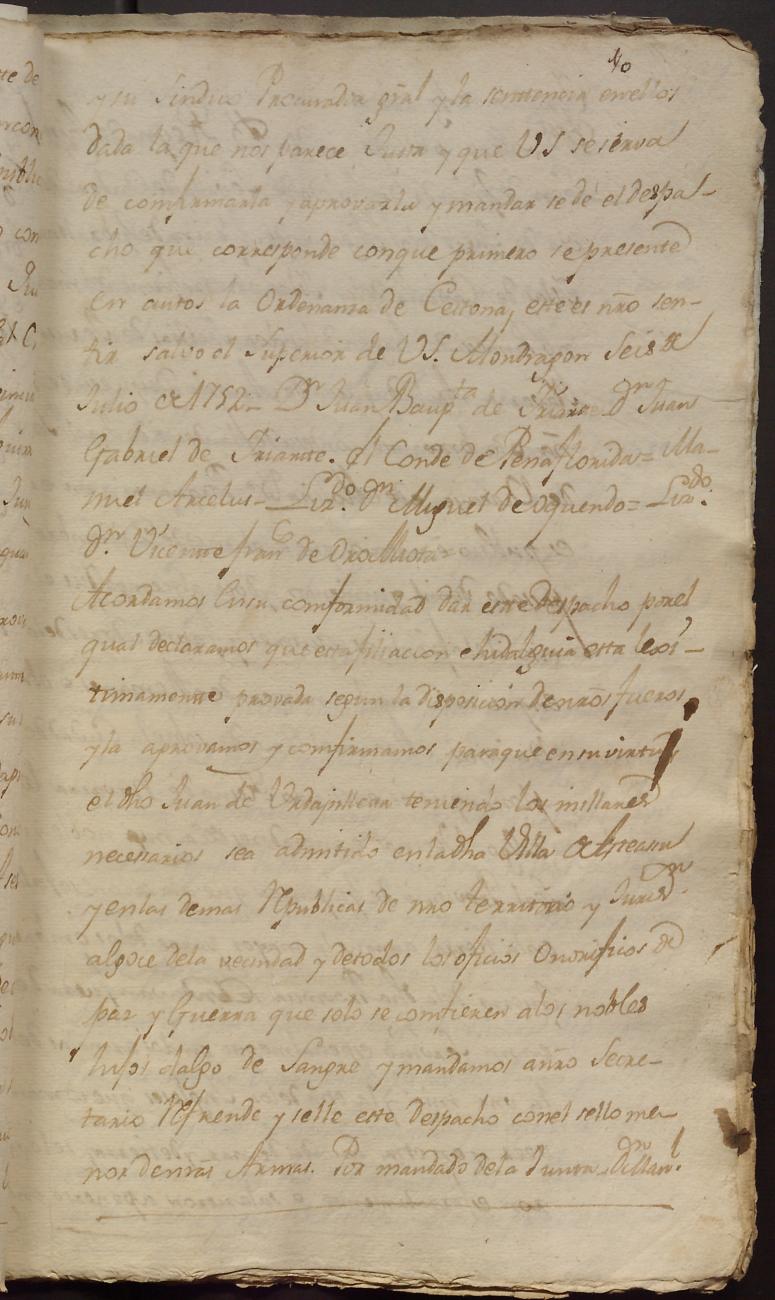 40
y su Sindico Procurador gral y la sentencia en ellos
dada la que nos parece Justa y que VS se sirva
de comfirmarla y aprovarla y mandar se dé el despa-
cho que corresponde conque primero se presente
en autos la Ordenanza de Cestona, este es nro sen-
tir salvo el Superior de VS. Mondragon Seis de
Julio de 1752_ Dn Juan Baupta de Iriarte Dn Juan
Gabriel de Iriarte. el Conde de Peñaflorida= Ma-
nuel Arcelus_ Lizdo Dn Miguel de Oquendo= Lizdo.
Dn. Vicente franco de
Acordamos en su comformidad dar este despacho por el
qual declaramos que esta filiacion e hidalguia esta lexi-
timamente provada segun la disposicion de nros fueros
y la aprovamos y comfirmamos para que en su virtud
el dho Juan de Urdapilleta teniendo los millares
necesarios sea admitido en la dha Villa de
y en las demas Republicas de nro territorio y Jurisdn
al goce de la vecindad y de todos los oficios Onorificos de
paz y Guerra que solo se comfieren a los nobles
hijos dalgo de Sangre y mandamos a nro Secre-
tario Refrende y selle este despacho con el sello me-
nor de nras Armas. Por mandado de la Junta Dn Manl